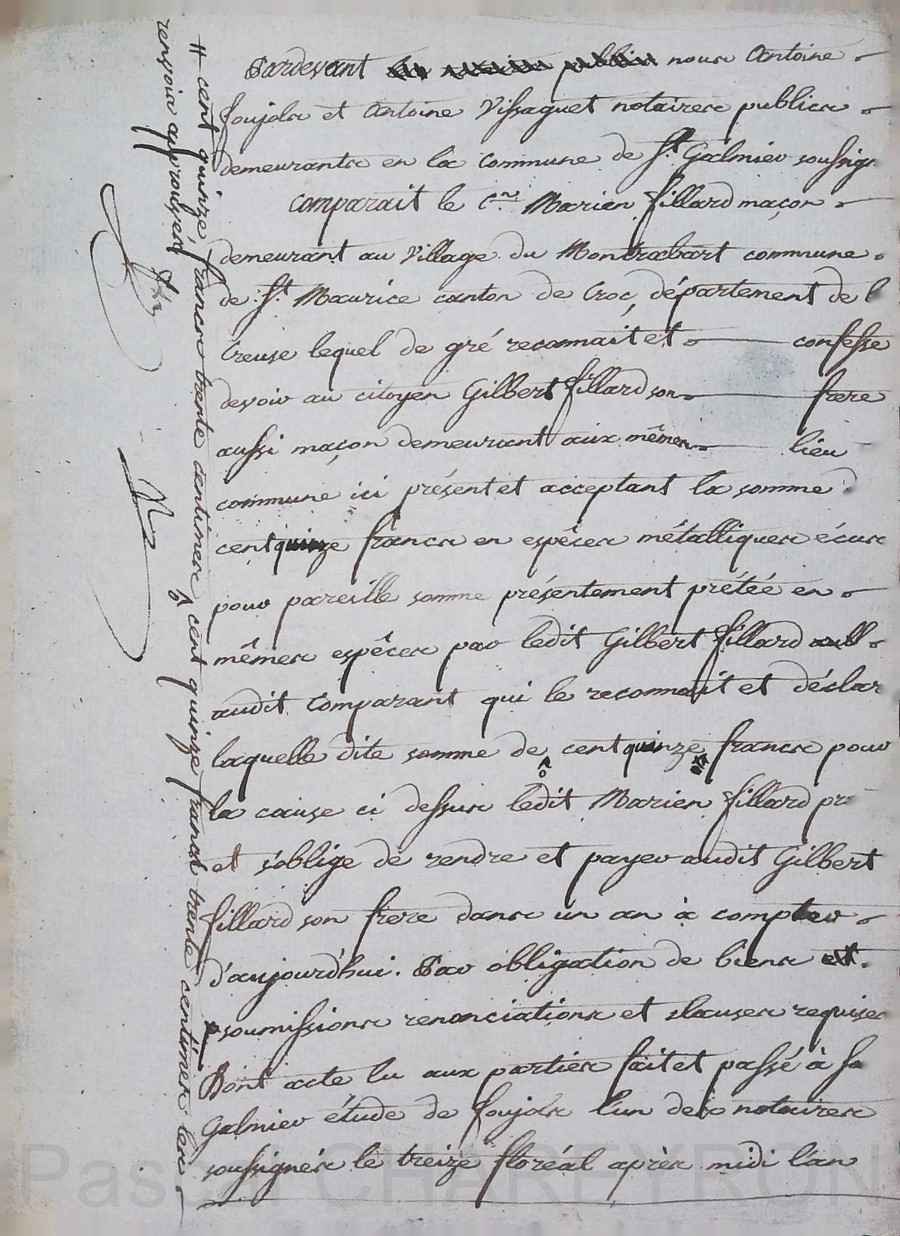 Pardevant nous Antoine
Foujols et Antoine Vissaguet notaires publics
demeurants en la commune de St Galmier soussig
Comparait le Cen Marien fillard maçon
demeurant au village du Montrobart commune
de St Maurice canton de Croc, département de l
Creuse lequel de gré reconnait et confesse
devoir au citoyen Gilbert fillard son frere
aussi maçon demeurant aux mêmes lieu
commune ici présent et acceptant la somme
cent quinze francs en espêces métalliques écus
pour pareille somme présentement prétée en
mêmes espêces par ledit Gilbert fillard
audit Comparant qui le reconnait et déclar
laquelle dite somme de cent quinze francs pour
la cause ci dessus ledit Marien fillard pr
et s'oblige de rendre et payer audit Gilbert
fillard son frere dans un an à compter
d'aujourd'hui. Par obligation de biens
soumissions renonciations et clauses requises
Dont acte lu aux parties fait et passé à St
Galmier étude de Foujols l'un des notaires
soussignés le treize floréal après midi l'an
# cent quinze francs trente centimes & cent quinze francs trente centimes les
renvois approuvés
Pascal CHAREYRON